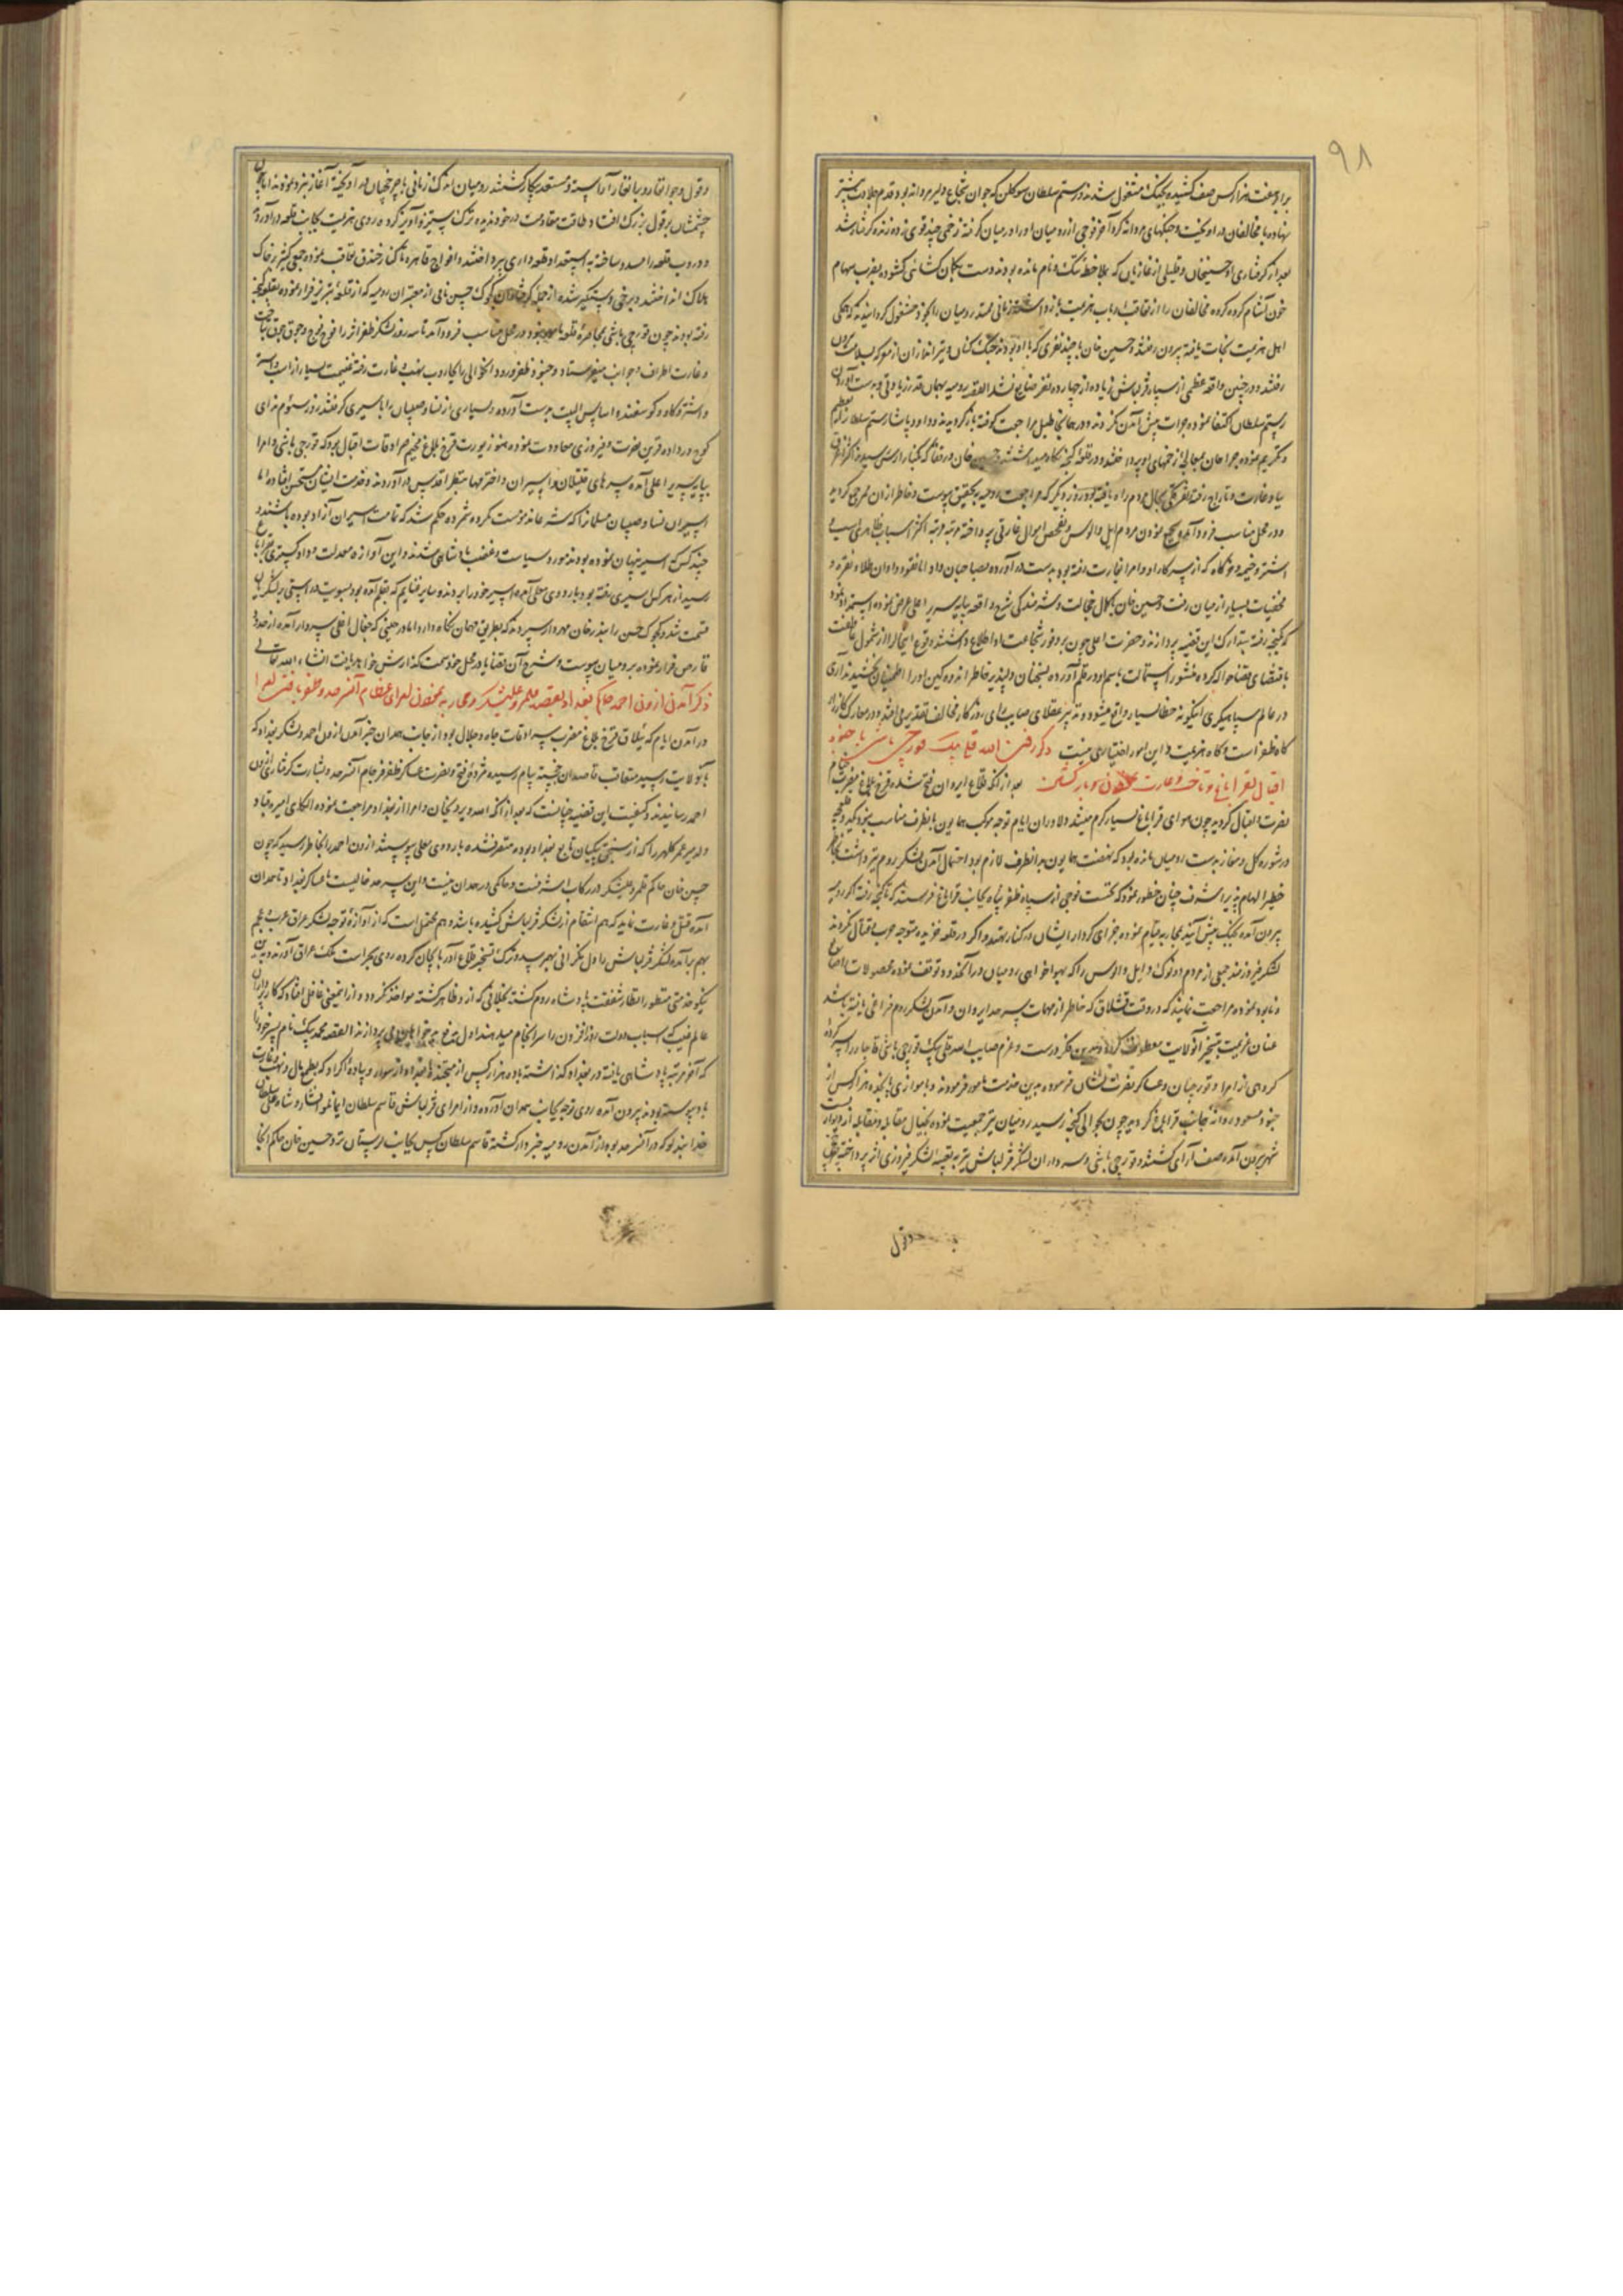 ۹۸
برابر هفت هزار کس صف کشیده بجنگ مشغول شدند و رستم سلطان سوکلن که جوان شجاع دلیر مردانه بود قدم جلادت پیشتر
نهاده با مخالفان در آویخت و جنگهای مردانه کرد آخر فوجی از رومیان او را در میان گرفته زخمی چند قوی زده زنده گرفتار شد
بعد از گرفتاری او حسینخان و قلیلی از غازیان که بملاحظه ننگ و نام مانده بودند دست بکمان کشائی کشوده بضرب سهام
خون آشام کرده کرده مخالفان را از تعاقب ارباب هزیمت باز داشته زمانی ممتد رومیان را بخود مشغول گردانیدند که همکی
اهل هزیمت نجات یافته بیرون رفتند و حسین خان با چند نفری که با او بودند جنگ کنان و تیراندازان از معرکه بسلامت بیرون
رفتند و در چنین واقعه عظمی از سپاه قزلباش زیاده از چهارده نفر ضایع نشد القصه رومیه بهمان قدر زیادتی و بدست آوردن
رستم سلطان اکتفا نموده جرات پیش آمدن نکردند و در همانجا طبل مراجعت کوفته بازگردیدند و داود پاشا رستم سلطان را تعظیم
و تکریم نموده جراحان بمعالجه زخمهای او پرداختند و در قلعه گنجه نگاه میداشتند و حسین خان و رفقا که
بیاد غارت و تاراج رفته تفرقگی بحال مردم راه یافته بود روز دیگر که مراجعت رومیه بتحقیق پیوست و خاطر از آن ممر جمع گردید
و در محل مناسب فرود آمده و بجمع نمودن مردم ایل و الوس و تفحص اموال غارتی پرداخته مرتبه مرتبه اکثر اسباب ظاهری اسب و
اشتر و خیمه و خرگاه که از سرکار او و امرا بغارت رفته بود بدست در آورده بصاحبان داد اما نقود و اوانی طلا و نقره و
مخفیات بسیار از میان رفت و حسین خان بکمال خجالت و شرمندگی شرح واقعه بپایه سریر اعلی عرض نموده استمداد نمود
که بگنجه رفته بتدارک این قضیه پردازند و حضرت اعلی چون بر وفور شجاعت او اطلاع داشتند وقوع اینحال را از شمول عاطفت
باقتضای قضا حواله کرده منشور استمالت باسم او در قلم آورده بسخنان دلپذیر خاطر اندوهگین او را اطمینان بخشیدند آری
در عالم سپاهیگری اینگونه خطا بسیار واقع میشود و تدبیر عقلای صایب رای روزگار مخالف تقدیر می افتد و در معارک کارزار
گاه ظفر است و گاه هزیمت و این امور اختیاری نیست ذکر رفتن الله قلی بیک قورچی باشی با جنود
اقبال بقراباغ و تاخت و غارت نمودن و بازگشتن بعد از آنکه قلاع ایروان فتح شده قریه قرخ بلاغ مضرب خیام
نصرت و اقبال گردید چون هوای قراباغ بسیار گرم میشد و لا در آن ایام توجه موکب همایون بانطرف مناسب نبود که قلعه گنجه
و در شوره گل و مغازبرد بدست رومیان مانده بود که نهضت همایون بدانطرف لازم بود و احتمال آمدن لشکر روم نیز داشت بخاطر
خطیر الهام پذیر اشرف چنان خطور نمود که نخست فوجی از سپاه ظفر پناه بجانب قراباغ فرستند که تا گنجه رفته اگر رومیه
بیرون آمده بجنگ پیش آیند بمحاربه قیام نموده جزای کردار ایشان در کنار نهند و اگر در قلعه خزیده متوجه حرب و قتال نگردند
لشکر فیروزمند جمعی از مردم اوتوک و ایل و الوس را که بهواخواهی رومیان در آنحدود توقف نموده محصولات ضایع
و نابود نموده مراجعت نمایند که در وقت قشلاق که خاطر از مهمات سرحد ایروان و آمدن لشکر روم فراغی یافته باشد
عنان عزیمت بتسخیر آنولایت معطوف گردد بدین فکر درست و عزم صایب الله قلی بیک قورچی باشی قاجار را سرکرده
گروهی از امرا و قورچیان و عساکر نصرت نشان فرموده بدین خدمت مامور فرمودند و با موازی پانزده هزار کس از
جنود مسعود روانه جانب قراباغ گردید چون بحوالی گنجه رسید رومیان نیز جمعیت نموده بخیال مقابله و مقاتله از دیوار بست
شهر بیرون آمده صف آرای گشتند و قورچی باشی و سرداران لشکر قزلباش نیز به تعبیه لشکر فیروزی اثر پرداخته چرخچی
و قول
و قول و جوانغار و برانغار آراسته و مستعد پیکار گشتند رومیان اندک زمانی با چرخچیان در آویخته آغاز نبرد نمودند اما چون
چشمشان بر قول بزرگ افتاد طاقت مقاومت در خود ندیده ترک ستیز و آویز کرده روی هزیمت بجانب قلعه در آوردند
و دروب قلعه را مسدود ساخته به استعداد قلعه داری پرداختند و افواج قاهره تا کنار خندق تعاقب نموده جمعی کثیر بر خاک
هلاک انداختند و برخی دستگیر شده از جمله گرفتاران کوک حسن نامی از معتبران رومیه که از قلعه تبریز فرار نموده بقلعه گنجه
رفته بودند چون قورچی باشی بمحاصره قلعه مامور نبود در محل مناسب فرود آمد تا سه روز لشکر ظفر اثر را فوج فوج و جوق جوق بتاخت
و غارت اطراف و جوانب میفرستاد و جنود ظفر ورود آنحوالی را بجاروب نهب و غارت رفته غنیمت بسیار از اسب و استر
و اشتر و گاو و گوسفند و اساس البیت بدست آورده و بسیاری از نساء و صبیان را باسیری گرفتند روز سیوم ندای
کوچ در داده قرین نصرت و فیروزی معاودت نموده هنوز یورت قرخ بلاغ مخیم سرادقات اقبال بود که قورچی باشی و امرا
بپایه سریر اعلی آمده سرهای قتیلان و اسیران و اختر مها بنظر اقدس در آوردند و خدمت ایشان مستحسن افتاده اما
اسیران نساء و صبیان مسلمانرا که شرعا ندموست مکروه شمرده حکم شد که تمامت اسیران آزاد بوده باشند و
چند کس که اسیر پنهان نموده بودند مورد سیاست و غضب پادشاهی شدند و این آوازه معدلت و داد گستری بقراباغ
رسید از هر کس اسیری رفته بود باردوی معلی آمده اسیر خود را بردند و سایر غنایم که بقلم آمده بود بسویت و راستی بر لشکریان
قسمت شد و کوک حسن را بذوالفقار خان مهردار سپردند که بطریق مهمان نگاه دارد اما در حینی که جغال اغلی سردار آمده از حدود
قارص فرار نموده برومیان پیوست و شرح آن قضایا در محل خود سمت گذارش خواهد یافت انشاء الله تعالی
ذکر آمدن ازون احمد حاکم بغداد بقصد قلمرو علیشکر و محاربه نمودن امرای عظام آنسرحد و ظفر یافتن امرا
در آن ایام که ییلاق قرخ بلاغ مضرب سرادقات جاه و جلال بود از جانب همدان خبر آمدن ازون احمد و لشکر بغداد که
بآنولایت رسید متعاقب قاصدان خجسته پیام رسیده مژده فتح و نصرت عساکر ظفر فرجام آنسرحد و بشارت گرفتاری ازون
احمد رسانیدند و کیفیت این قضیه چنانست که بعد از آنکه الله ویردیخان و امرا از بغداد مراجعت نموده الکای امیر قباد
ولد میر عمر کلهر را که از سنجق بیکیان تابع بغداد بود متصرف شده باردوی معلی پیوستند ازون احمد را بخاطر رسید که چون
حسن خان حاکم قلمرو علیشکر در رکاب اشرفست و حاکمی در همدان نیست و این سرحد خالیست با عساکر بغداد تا همدان
آمده قتل و غارت نماید که هم انتقام از لشکر قزلباش کشیده باشد و هم محتمل است که از آوازه توجه لشکر عراق عرب و عجم
بهم برآمده لشکر قزلباش را دل نگرانی بهمرسد و ترک تسخیر قلاع آذربایجان کرده روی بحراست ملک عراق آورند و بدین
نیکو خدمتی منظور انظار شفقت پادشاه روم گشته بخلافی که از و ظاهر گشته مواخذ نگردد و از اینمعنی غافل افتاد که کارپردازان
عالم غیب که اسباب دولت روز افزون را سرانجام میدهند اول بدفع بدخواهان می پردازند القصه محمد بیک نام پسر خود را
که آخر مرتبه پادشاهی یافته در بغداد گذاشته با ده هزار کس از سنجق بیکیان بغداد از سواره و پیاده و اکراد که بطمع مال و نهب و غارت
باو پیوسته بودند بیرون آمده روی توجه بجانب همدان آورده و از امرای قزلباش قاسم سلطان ایمانلو افشار و شاه علی سلطان
خدابنده لو که در آنسرحد بود از آمدن رومیه خبردار گشته قاسم سلطان کس بجانب لرستان نزد حسین خان حاکم آنجا